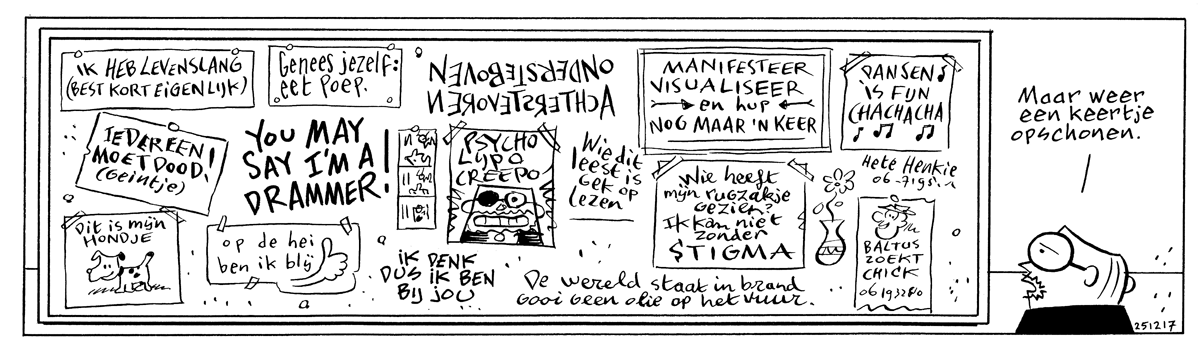 IK HEB LEVENSLANG
(BEST KORT EIGENLIJK)
Genees jezelf:
eet poep.
ACHTERSTEVOREN
ONDERSTEBOVEN
MANIFESTEER
VISUALISEER
en hup
NOG MAAR 'N KEER
DANSEN
iS FIJN
CHACHACHA
IEDEREEN
MOET DOOD!
(Geintje)
YOU MAY
SAY I'M A
DRAMMER!
PSYCHO
LYPO
CREEPO
Wie dit
leest is
GEK OP
lezen
Wie heeft
mijn rugzakje
gezien?
Ik kan niet
zonder
STIGMA
Hete Henkie
Dit is mijn
HONDJE
op de hei
ben ik blij
iK DENK
DUS iK BEN
BIJ JOU
De wereld staat in brand
Gooi geen olie op het vuur.
BALTUS
ZOEKT
CHICK
Maar weer
een keertje
opschonen.
251217